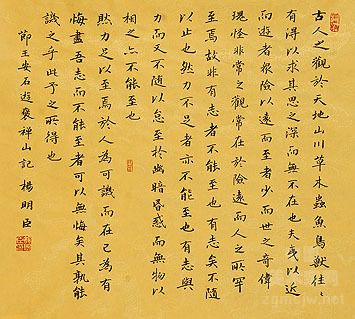 古人之觀於天地山川草木蟲魚鳥獸往
有得以求其思之深而無不在也夫夷以近
而遊者衆險以遠而至者少而世之奇偉
瑰怪非常之觀常在於險遠而人之所罕
至焉故非有志者不能至也有志矣不隨
以止也然力不足者亦不能至也有志與
力而又不隨以怠至於幽暗昏惑而無物以
相之亦不能至也
然力足以至焉於人為可譏而在己為有
悔盡吾志而不能至者可以無悔矣其孰能
譏之乎此予之所得也
節王安石遊褒禪山記 楊明臣